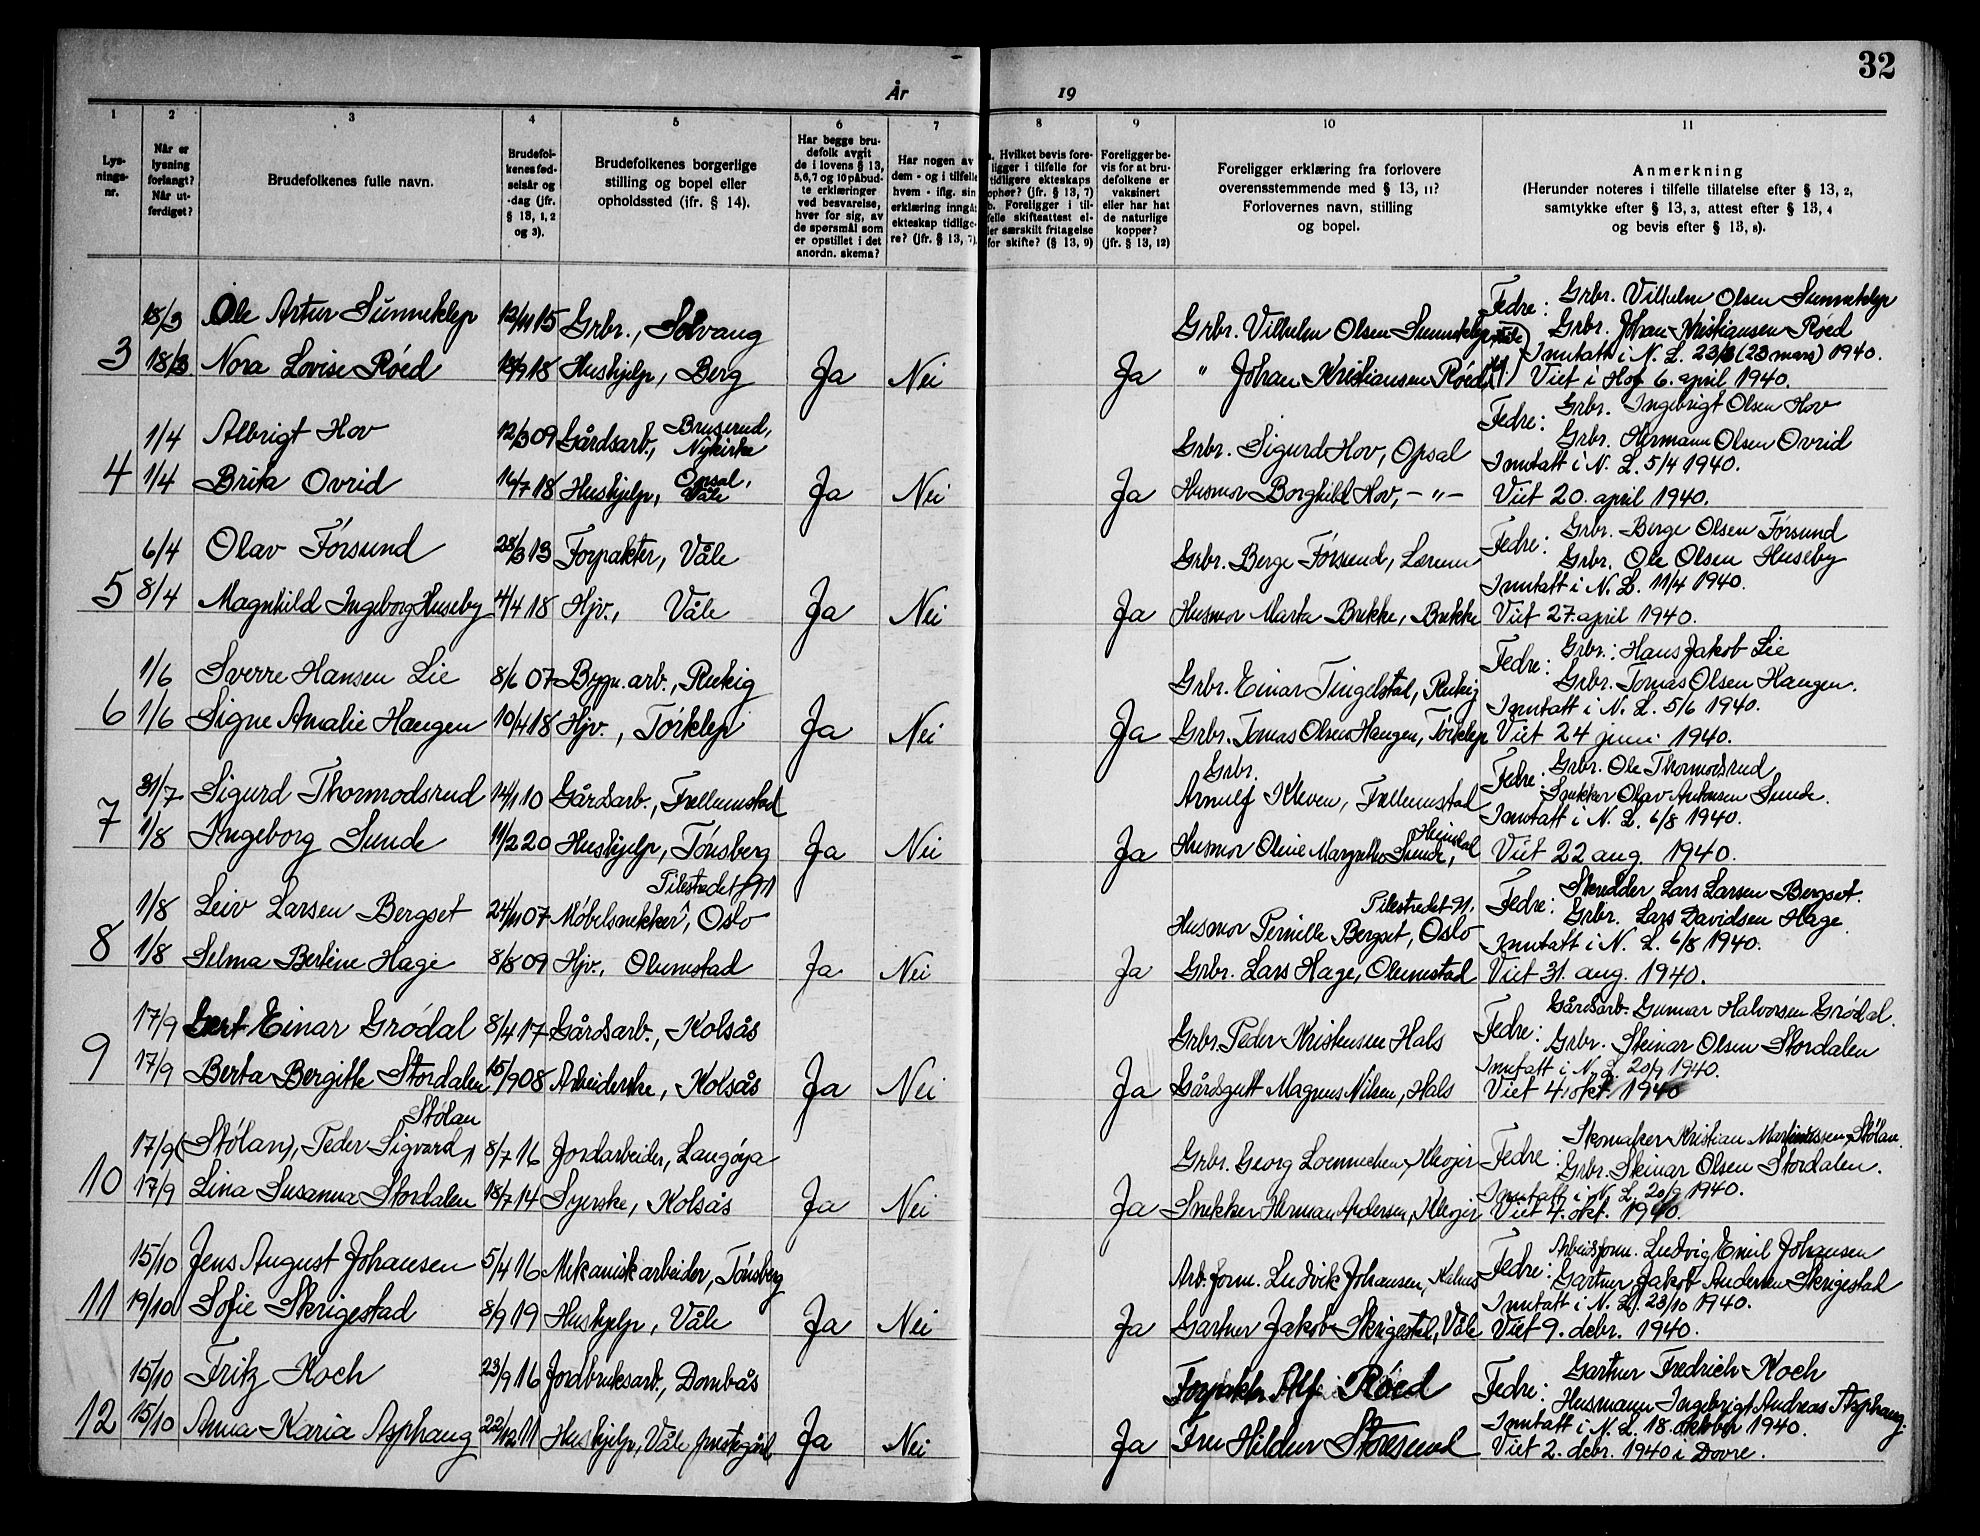 32
År 19
1 2 3 4 5 6 7 8 9 10 11
Lys-
nings-
nr.
Når er
lysning
forlangt?
Når ut-
ferdiget?
Brudefolkenes fulle navn.
Brudefol-
kenes fød-
selsår og
-dag (jfr.
§ 13, 1, 2
og 3).
Brudefolkenes borgerlige
stilling og bopel eller
opholdssted (ifr. § 14).
Har begge bru-
defolk avgit
de i lovens § 13,
5,6,7 og 10 påbud-
te erklæringer
ved besvarelse,
hver for sig, av
de spørsmål som
er opstillet i det
anordn. skema?
Har nogen av
dem - og i tilfelle
hvem - iflg. sin
erklæring inngåt
ekteskap tidlige-
re? (jfr. § 13, 7).
a. Hvilket bevis fore-
ligger i tilfelle for
tidligere ekteskaps
ophør? (jfr. § 13, 7)
b. Foreligger i til-
felle skifteattest el-
ler særskilt fritagelse
for skifte? (§ 13, 9)
Foreligger be-
vis for at bru-
defolkene er
vaksinert
eller har hat
de naturlige
kopper?
(jfr. § 13, 12)
Foreligger erklæring fra forlovere
overensstemmende med § 13, 11?
Forlovernes navn, stilling
og bopel.
Anmerkning
(Herunder noteres i tilfelle tillatelse efter § 13, 2,
samtykke efter § 13, 3, attest efter § 13, 4
og bevis efter § 13, 8).
18/3 Ole Artur Sunneklep 12/11 15 Grbr., Solvang Grbr. Vilhelm Olsen Sunneklep Fedre: Grbr. Vilhelm Olsen Sunneklep
Grbr. Johan Kristiansen Røed
Inntatt i N. L. 23/3 (23 mars) 1940.
3 18/3 Nora Lovise Røed 18 Hushjelp, Berg Ja Nei Ja " Johan Kristiansen Røed Viet i Hof 6. april 1940.
1/4 Albrigt Hov 12/3 09 Gårdsarb., Bruserud, Nykirke Grbr. Sigurd Hov, Opsal Fedre: Grbr. Ingebrigt Olsen Hov
Grbr. Hermann Olsen Ovrid
Inntatt i N. L. 5/4 1940.
4 1/4 Brita Ovrid 16/7 18 Hushjelp, Opsal, Våle Ja Nei Ja Husmor Borghild Hov, - " - Viet 20. april 1940.
6/4 Olav Førsund 28/3 13 Forpakter, Våle Grbr. Berge Førsund, Lærum Fedre: Grbr. Berge Olsen Førsund
Grbr. Ole Olsen Huseby
Inntatt i N. L. 11/4 1940.
5 8/4 Magnhild Ingeborg Huseby 4/4 18 Hjv., Våle Ja Nei Ja Husmor Marta Brekke, Brekke Viet 27. april 1940.
1/6 Sverre Hansen Lie 8/6 07 Bygn. arb., Rekig Grbr. Einar Tingelstad, Rekig Fedre: Grbr.: Hans Jakob Lie
Grbr. Tomas Olsen Haugen.
Inntatt i N. L. 5/6 1940.
6 1/6 Signe Amalie Haugen 10/4 18 Hjv., Tørklep Ja Nei Ja Grbr. Tomas Olsen Haugen, Tørklep Viet 24 juni 1940.
31/7 Sigurd Thormodsrud 14/1 10 Gårdsarb., Frellumstad Grbr. Arnulf Kleven, Frellumstad Fedre: Grbr. Ole Thormodsrud
Snekker Olav Antonsen Sunde.
Inntatt i N. L. 6/8 1940.
7 1/8 Ingeborg Sunde 11/2 20 Hushjelp, Tønsberg Ja Nei Ja Husmor Oline Margrethe Sunde, Heimdal Viet 22 aug. 1940.
1/8 Leiv Larsen Bergset 24/11 07 Møbelsnekker, Pilestredet 91 Oslo Husmor Pernille Bergset, Pilestredet 91. Oslo Fedre: Skredder Lars Larsen Bergset.
Grbr. Lars Davidsen Hage
Inntatt i N. L. 6/8 1940.
8 1/8 Selma Bertine Hage 8/8 09 Hjv., Olumstad Ja Nei Ja Grbr. Lars Hage, Olumstad Viet 31. aug. 1940.
17/9 Gert Einar Grødal 8/4 17 Gårdsarb., Kolsås Grbr. Peder Kristensen Hals Fedre: Gårdsarb. Gunnar Halvorsen Grødal.
Grbr. Steinar Olsen Stordalen
Inntatt i N. L. 20/9 1940.
9 17/9 Berta Bergitte Stordalen 15/9 08 Arbeiderske, Kolsås Ja Nei Ja Gårdsgutt Magnus Nilsen, Hals Viet 4. okt. 1940
17/9 (Stølan), Peder Sigvard Stølan 8/7 16 Jordarbeider, Langøya Grbr. Georg Loennechen, Kleojer Fedre: Skomaker Kristian Martinussen Stølan.
Grbr. Steinar Olsen Stordalen.
Inntatt i N. L. 20/9 1940.
10 17/9 Lina Susanna Stordalen 18/7 14 Syerske, Kolsås Ja Nei Ja Snekker Herman Andersen, Kleojer Viet 4. okt. 1940.
15/10 Jens August Johansen 5/4 16 Mekanisk arbeider, Tønsberg Arb. form. Ludvik Johansen, Kalnes Fedre: Arbeidsform. Ludvig Emil Johansen
Gartner Jakob Andersen Skrigestad
Inntatt i N. L. 23/10 1940.
11 19/10 Sofie Skrigestad 8/9 19 Hushjelp, Våle Ja Nei Ja Gartner Jakob Skrigestad, Våle Viet 9. debr. 1940.
15/10 Fritz Koch 23/9 16 Jordbruksarb., Dombås Forpakter Alf Røed Fedre: Gartner Fredrich Koch
Husmann Ingebrigt Andreas Asphaug.
Inntatt i N. L. 18. oktober 1940.
12 15/10 Anna Karia Asphaug 22/12 11 Hushjelp, Våle prestegård Ja Nei Ja Fru Hildur Storesund Viet 2. debr. 1940 i Dovre.